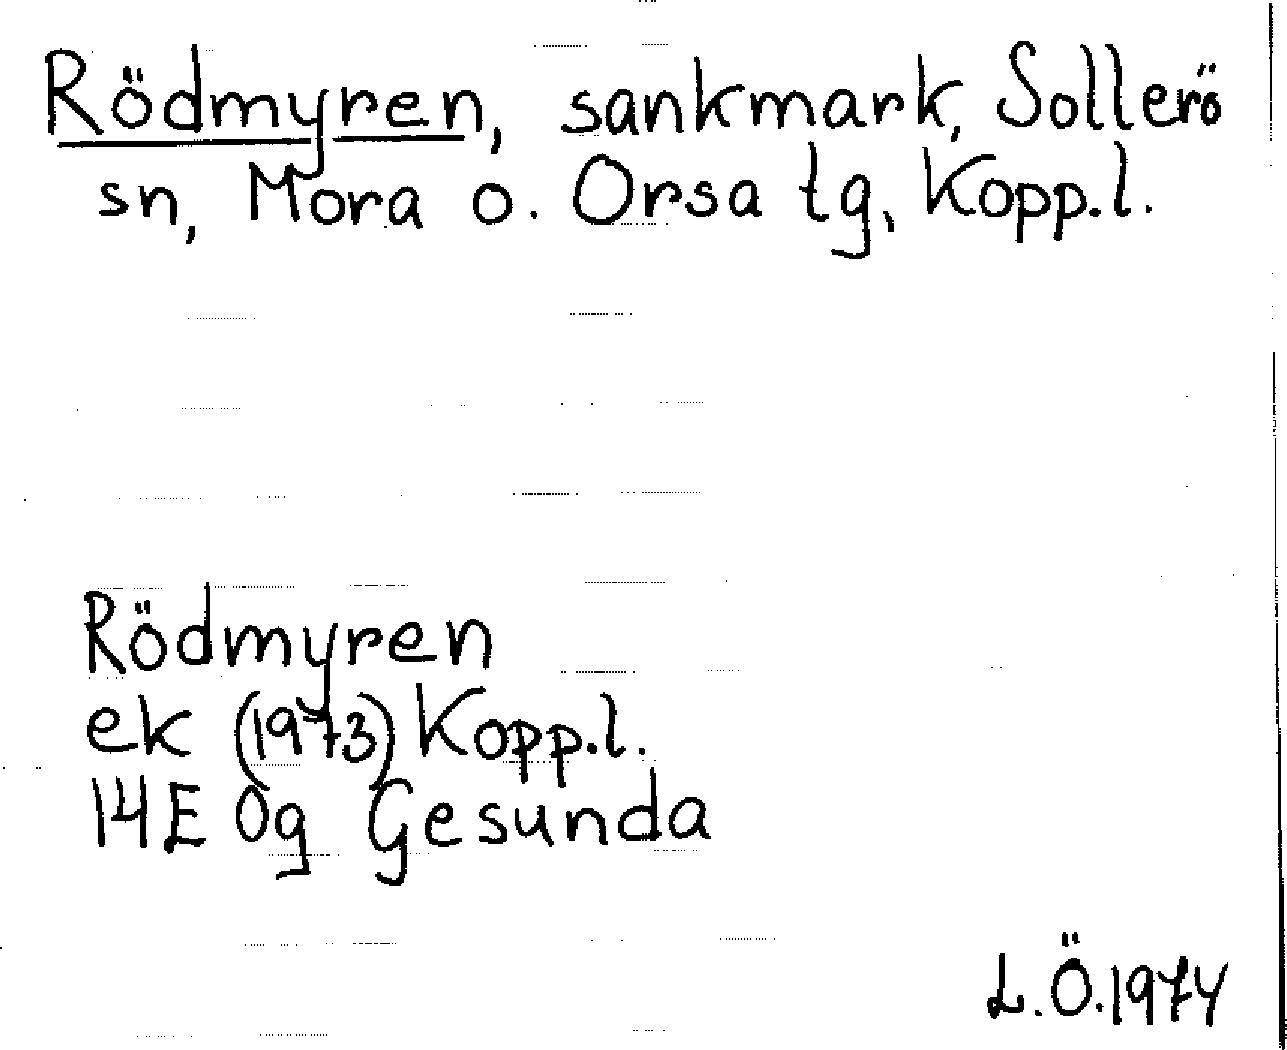 Rödmyren, sankmark, Sollerö
sn, Mora o. Orsa tg, Kopp.l.
Rödmyren
ek (1973) Kopp.l.
14E 0g Gesunda
L.Ö.1974